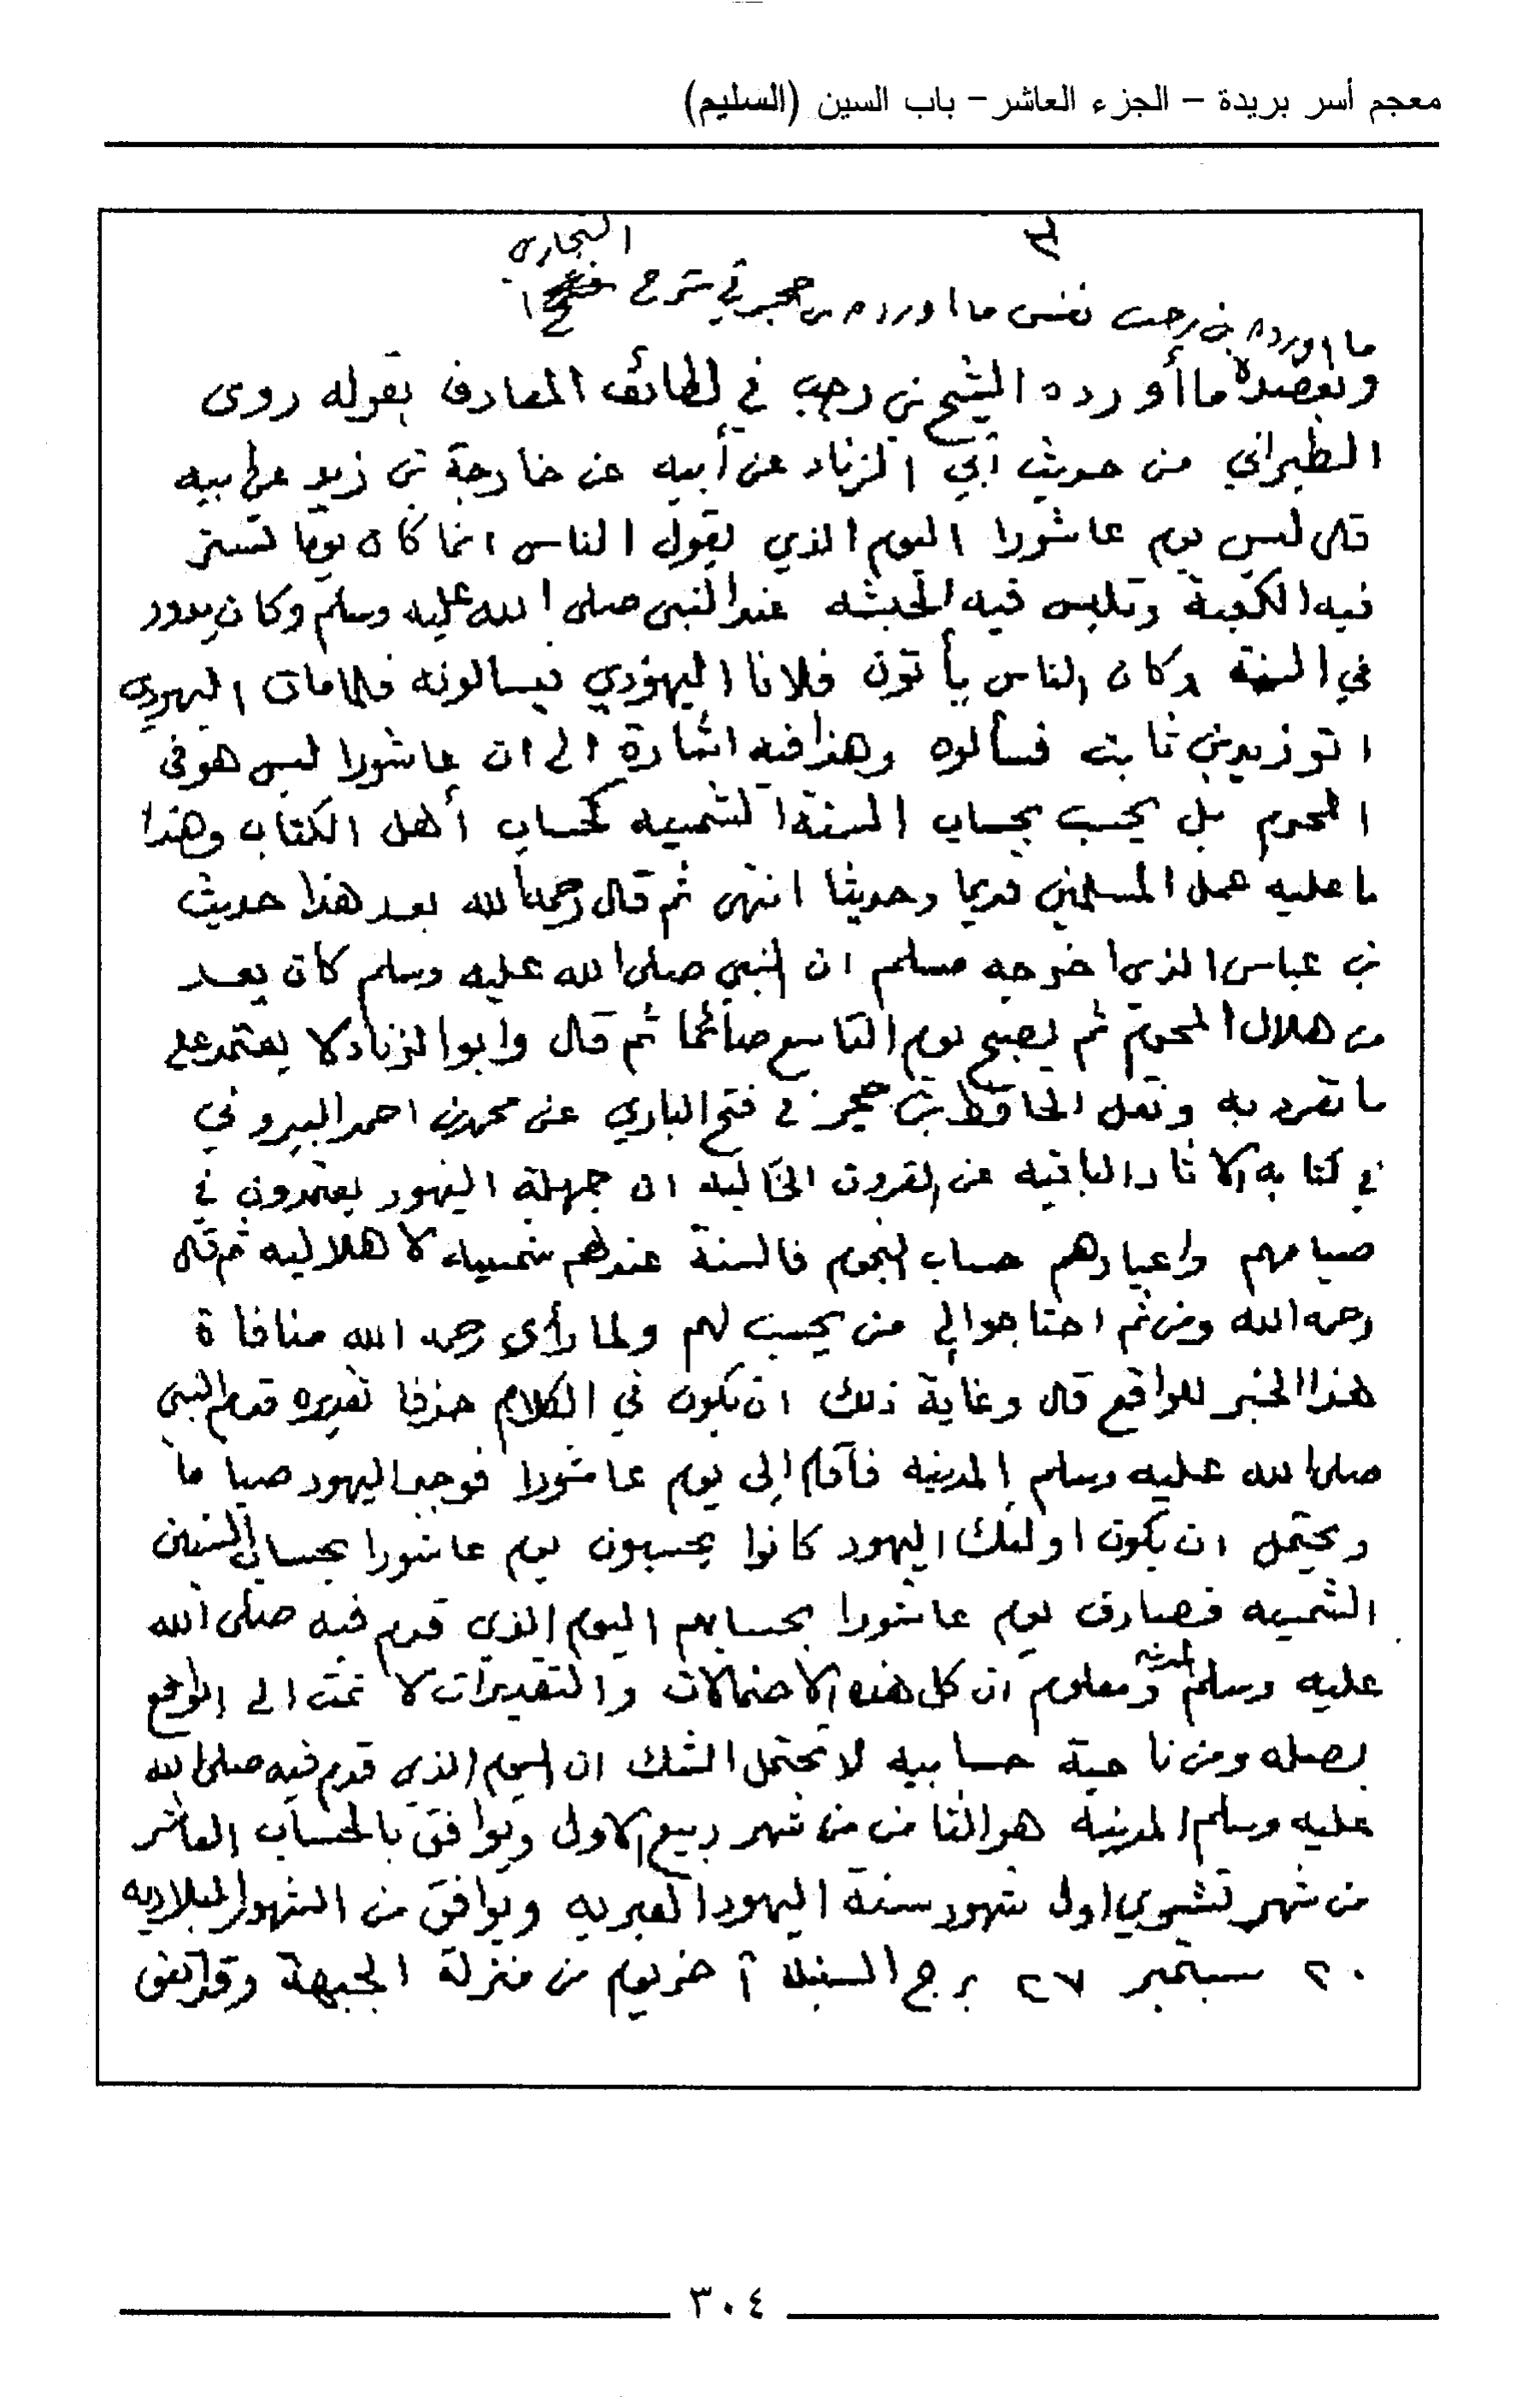 معجم أسر بريدة – الجزء العاشر – باب السين (السليم)
البخاري
ما اورده بن رجب نفس ما اورده بن حجر في شرح
ونقصد ما أورده الشيخ بن رجب في لطائف المعارف بقوله روى
الطبراني من حديث أبي الزناد عن أبيه عن خارجة بن زيد عن ابيه
قال ليس يوم عاشورا اليوم الذي يقول الناس انما كان يوما تستر
فيه الكعبة وتلبس فيه الحبشه عند النبي صلى الله عليه وسلم وكان يدور
في السنة وكان الناس يأتون فلانا اليهودي فيسالونه فلما مات اليهودي
اتو زيد بن ثابت فسألوه وهذا فيه اشارة الى ان عاشورا ليس هو في
المحرم بل يحسب بحساب السنة الشمسيه كحساب أهل الكتاب وهذا
ما عليه عمل المسلمين قديما وحديثا انتهى ثم قال رحمه الله بعد هذا حديث
بن عباس الذي اخرجه مسلم ان النبي صلى الله عليه وسلم كان يعد
من هلال المحرم ثم يصبح يوم التاسع صائما ثم قال وابو الزناد لا يعتمد على
ما تفرد به ونقل الحافظ بن حجر في فتح الباري عن محمد بن احمد البيروني
في كتابه الاثار الباقيه عن القرون الخاليه ان جهلة اليهود يعتمدون في
صيامهم واعيادهم حساب النجوم فالسنة عندهم شمسيه لا هلاليه ثم قال
رحمه الله ومن ثم احتاجوا الى من يحسب لهم ولما رأى رحمه الله منافاة
هذا الخبر للواقع قال وغاية ذلك ان يكون في الكلام حذفا تقديره قدم النبي
صلى الله عليه وسلم المدينه فأقام إلى يوم عاشورا فوجد اليهود صياما
ويحتمل ان يكون اولئك اليهود كانوا يحسبون يوم عاشورا بحساب السنين
الشمسيه فصادف يوم عاشورا بحسابهم اليوم الذي قدم فيه صلى الله
عليه وسلم المدينه ومعلوم ان كل هذه الاحتمالات والتقديرات لا تمت الى الواقع
بصله ومن ناحية حسابيه لا تحتمل الشك ان اليوم الذي قدم فيه صلى الله
عليه وسلم المدينة هو الثامن من شهر ربيع الاول ويوافق بالحساب العاشر
من شهر تشري اول شهور سنة اليهود العبريه ويوافق من الشهور الميلاديه
٢٠ سبتمبر ٢٧ برج السنبلة آخر يوم من منزلة الجبهة وقد اتفق
٣٠٤